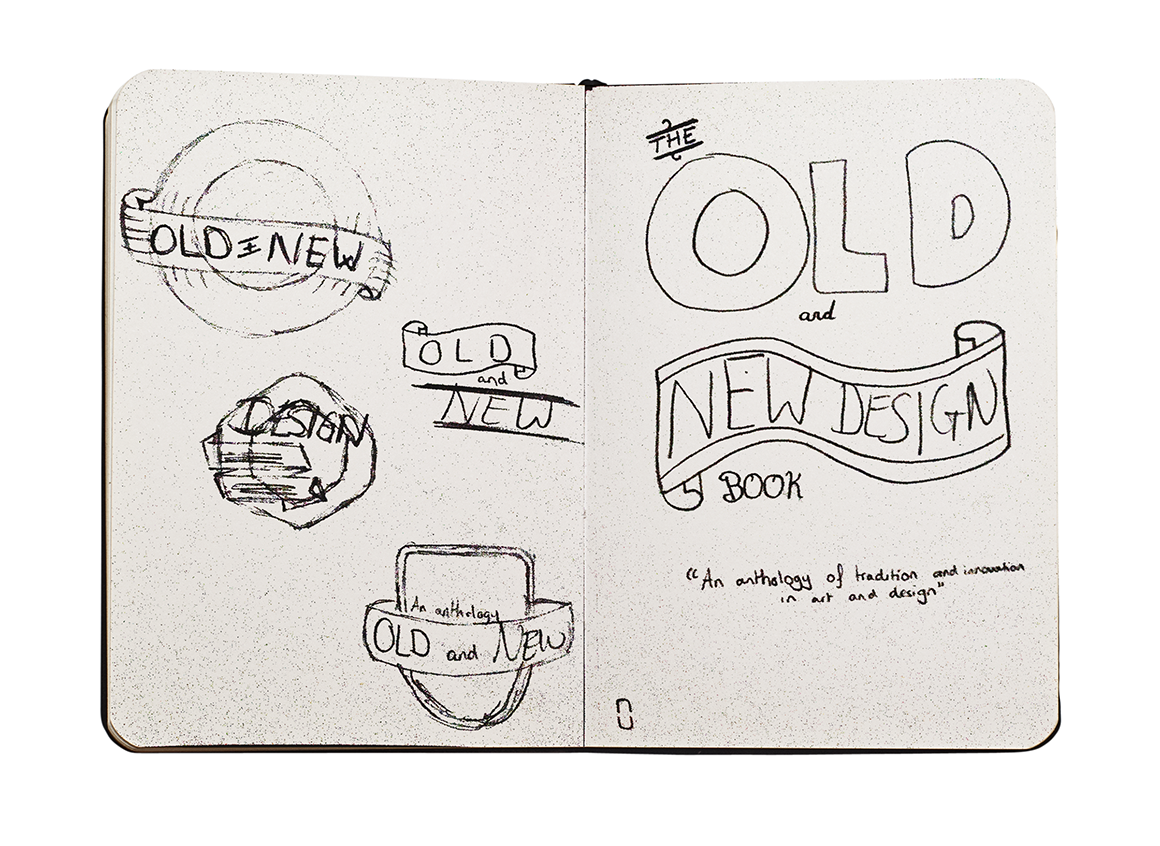 OLD & NEW
OLD
and
NEW
DESIGN
An anthology
OLD and NEW
THE
OLD
and
NEW DESIGN
BOOK
"An anthology of tradition and innovation
in art and design"